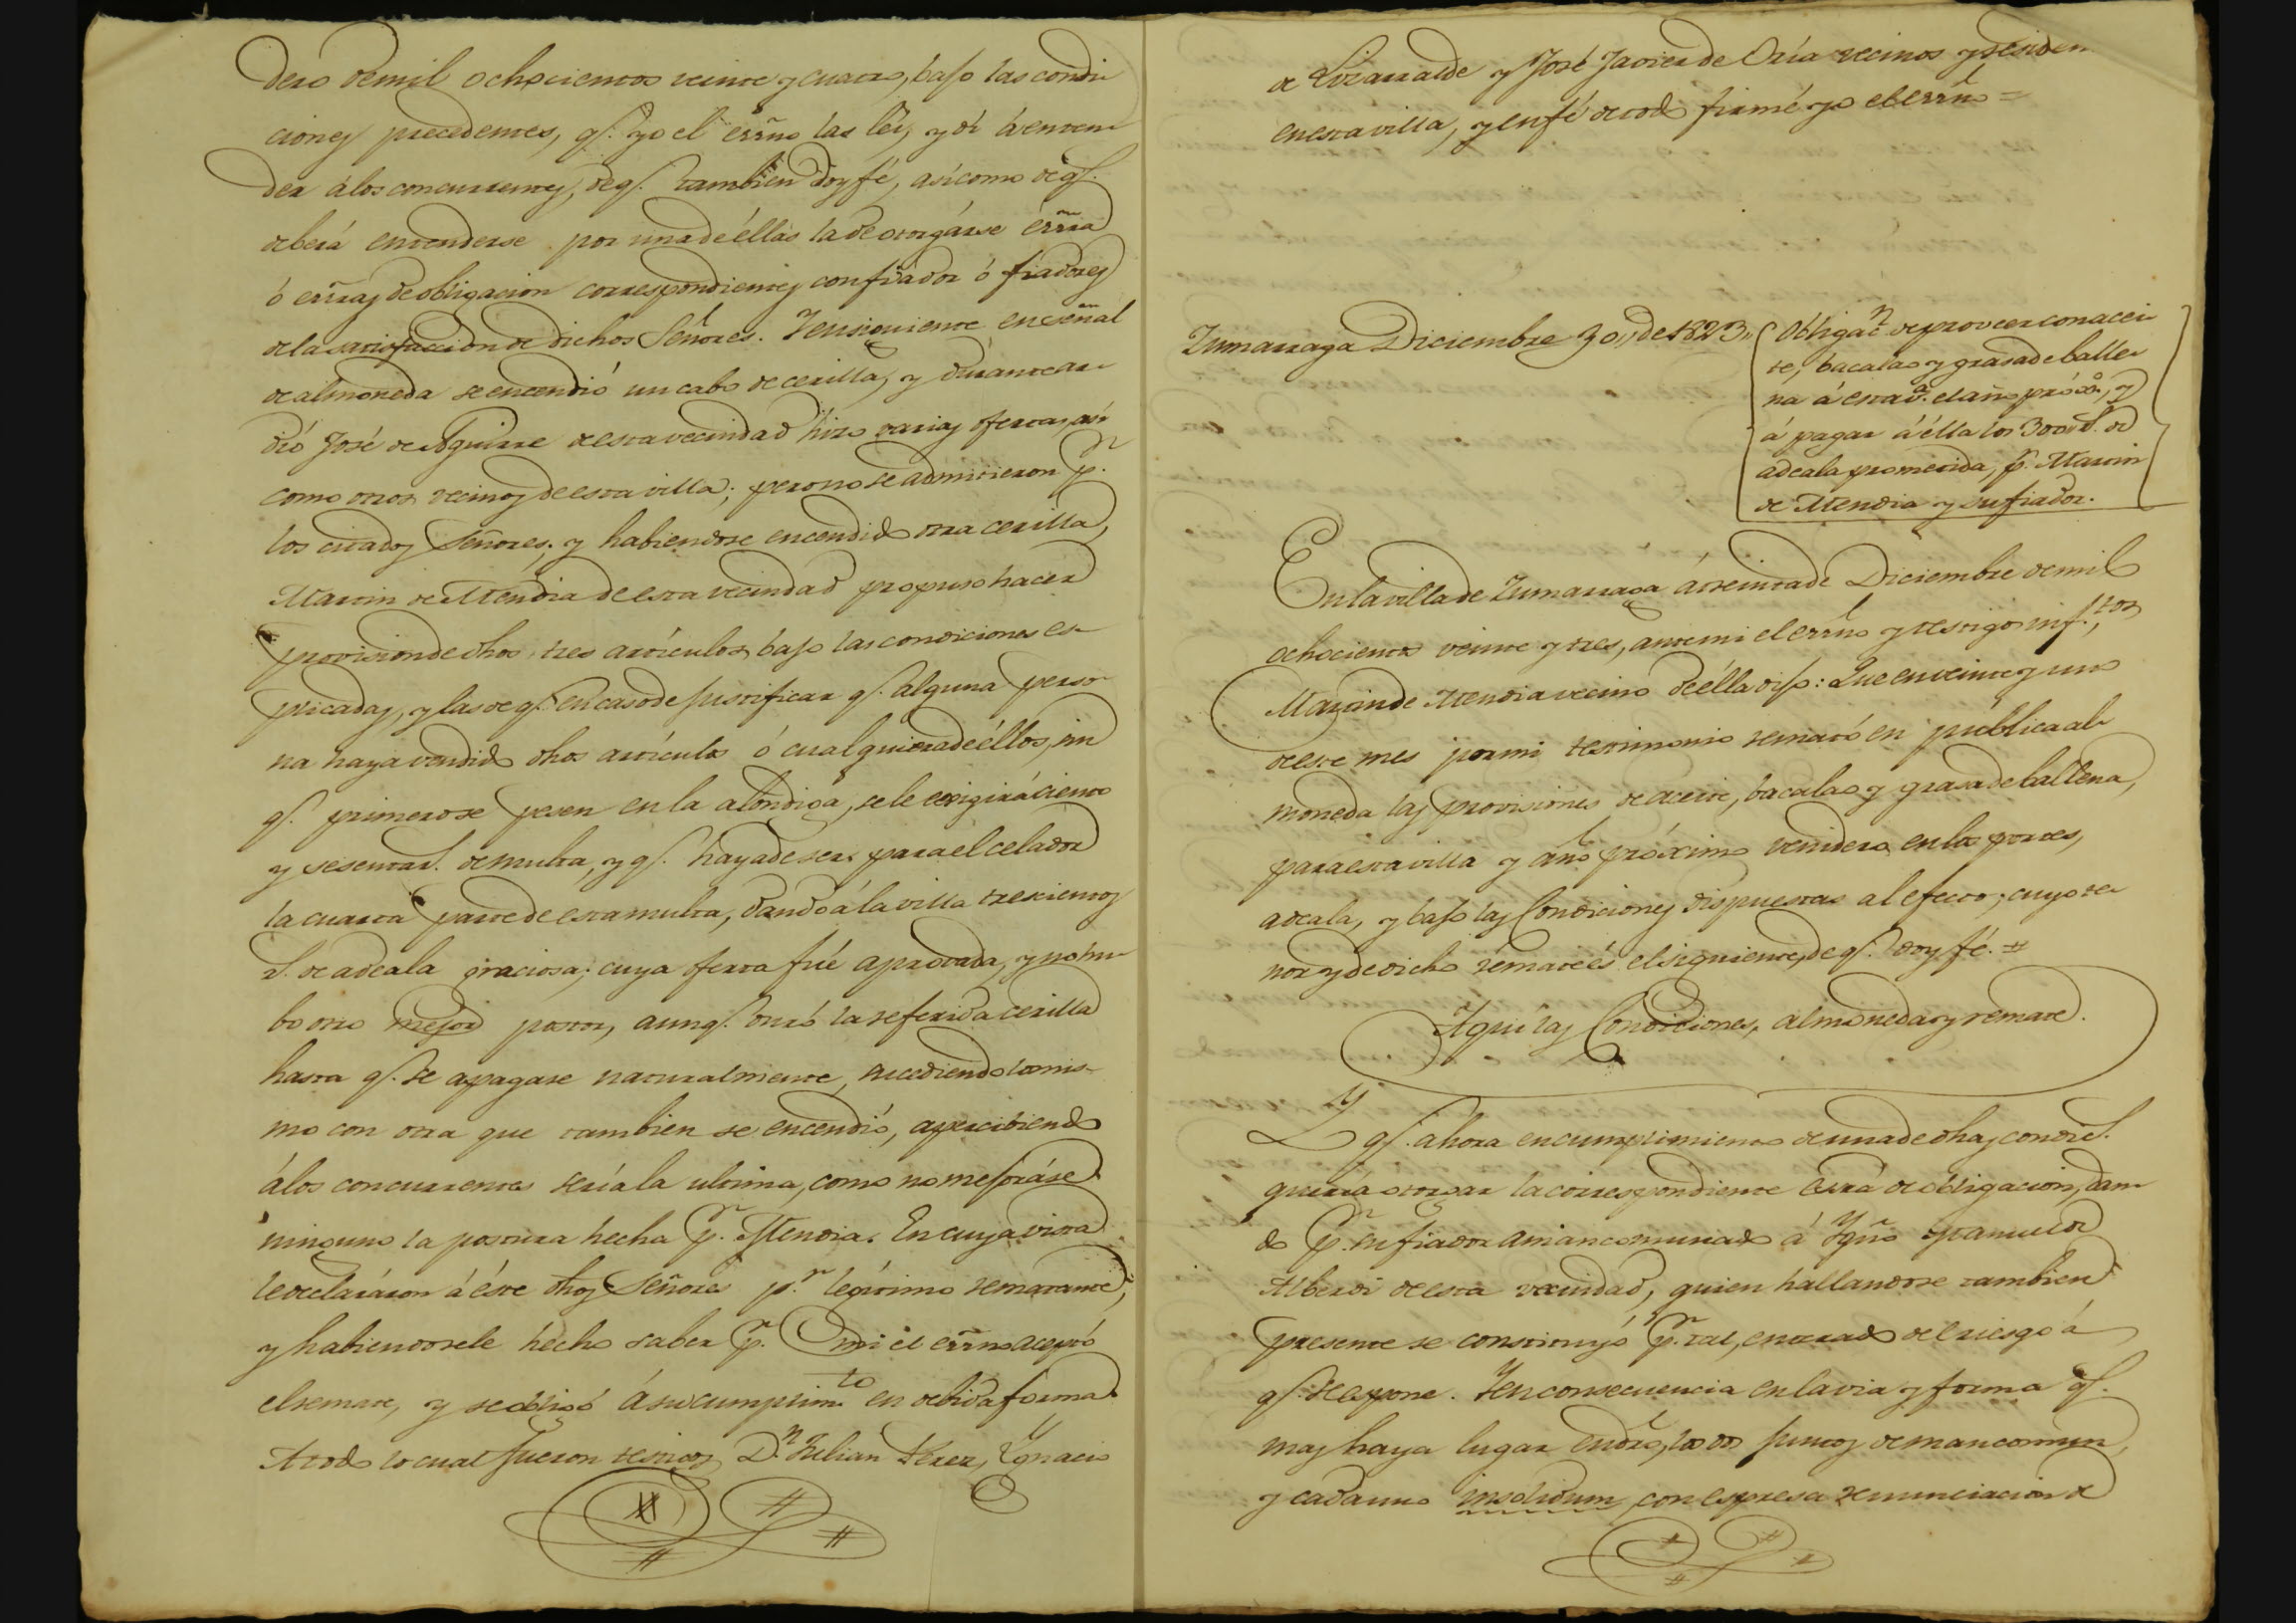 dero de mil ochocientos veinte y cuatro, bajo las condi-
ciones precedentes, q.e yo el essno las leí, y dí á enten-
der á los concurrentes, de q.e tambien doy fé, así como de q.e
deberá entenderse por una de éllas la de otorgárse essra
ó essras de obligacion correspondientes con fiador ó fiadores
de la satisfaccion de dichos Señores. Y en siguiente en señal
de almoneda se encendió un cabo de cerilla, y durante ar-
dió José de Aguirre de esta vecindad hizo varias ofertas, así
como otros vecinos de esta villa; pero no se admitieron p.r
los citados Señores; y habiendose encendido otra cerilla,
Martin de Mendia de esta vecindad propuso hacer
provision de dhos tres artículos bajo las condiciones es-
plicadas, y las de q.e en caso de justificar q.e alguna perso-
na haya vendido dhos artículos ó cualquiera de éllos, sin
q.e primero se pesen en la alóndiga, se le exigirá ciento
y sesenta r.s de multa, y q.e haya de ser para el celador
la cuarta parte de esta multa, dando á la villa trescientos
r.s de adeala graciosa; cuya oferta fué aprovada, y no hu-
bo otro mejor postor, aunq.e duró la referida cerilla
hasta q.e se apagase naturalmente, sucediendo lo mis-
mo con otra que tambien se encendió, apercibiendo
á los concurrentes sería la ultima, como no mejoráse
ninguno la postura hecha p.r Mendia. En cuya vista
le declaráron á éste dhos Señores p.r legítimo rematante,
y habiendosele hecho saber p.r mi el essno aceptó
el remate, y se obligó á su cumplim.to en debida forma.
A todo lo cual fueron testigos D.n Julian Perez, Ygnacio
de Lizarralde y José Javier de Oria vecinos y residen
en esta villa, y en fé de todo firmé yo el essno =
Zumarraga Diciembre 30,, de 1823,,
Obligac.n de proveer con acei-
te, bacalao y grasa de balle-
na á esta v.a el año próx.o, y
á pagar á élla los 300 r.s de
adeala prometida, p.r Martin
de Mendia y su fiador.
En la villa de Zumarraga á treinta de Diciembre de mil
ochocientos veinte y tres, ante mi el essno y testigos inf.tos,
Martin de Mendia vecino de élla dijo: Que en veinte y uno
de este mes por mi testimonio remató en pública al-
moneda las provisiones de aceite, bacalao y grasa de ballena,
para esta villa y año próximo venidero en los portes,
adeala, y bajo las Condiciones dispuestas al efecto; cuyo te-
nor y de dicho remate és el siguiente, de q.e doy fé. =
Aquí las Condiciones, almoneda y remate.
Y q.e ahora en cumplimiento de una de dhas condic.s
quería otorgar la correspondiente essrá de obligacion, dan-
do p.r su fiador amancomunado á Ygn.o Manuel de
Alberdi de esta vecindad, quien hallandose tambien
presente se constituyó p.r tal, enterado del riesgo á
q.e se espone. Y en consecuencia en la via y forma q.e
mas haya lugar en dro, los dos juntos de mancomun,
y cada uno insolidum, con espresa renunciacion de